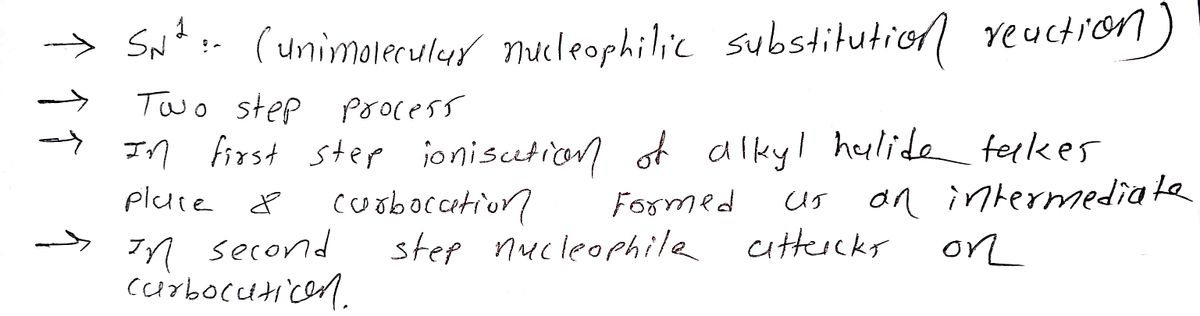 → SN¹ :- (unimolecular nucleophilic substitution reaction)
→ Two step process
→ In first step ionisation of alkyl halide takes
place & carbocation formed as an intermediate
→ In second step nucleophile attacks on
carbocation.